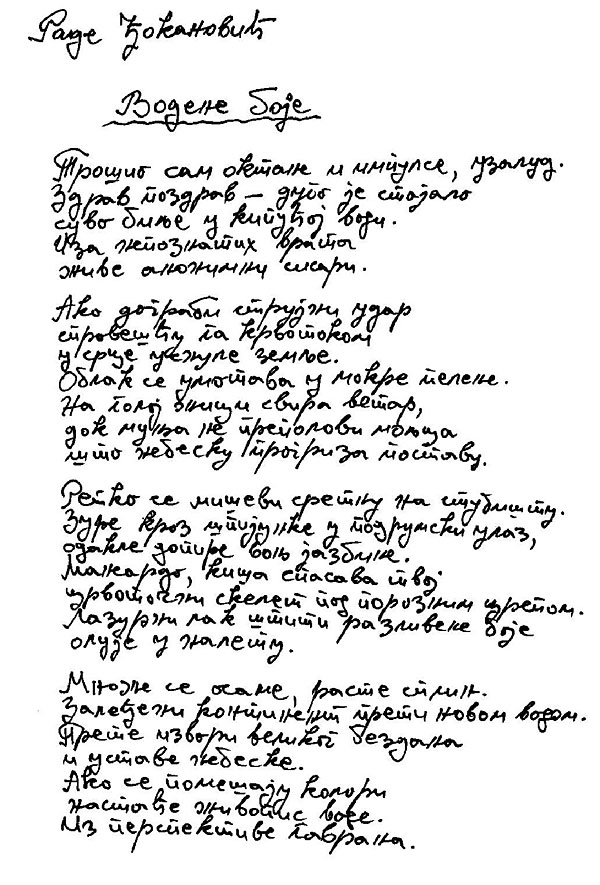 Раде Ђокановић
Водене боје
Трошио сам октане и импулсе, узалуд.
Здрав поздрав — дуго је стајало
суво биље у кипућој води.
Иза непознатих врата
живе анонимни сисари.
Ако дограби струјни удар
спровешћу га крвотоком
у срце уснуле земље.
Облак се умотава у мокре пелене.
На голој жици свира ветар,
док муња не преполови мољца
што небеску прогриза поставу.
Ретко се мишеви сретну на стубишту.
Зуре кроз шпијунке у подрумски улаз,
одакле допире воњ јазбине.
киша спасава твој
црвоточни скелет под порозним црепом.
Лазурни лак штити разливене боје
олује у налету.
Множе се осаме, расте сплин.
Залеђени континент прети новом водом.
Прете извори великог бездана
и уставе небеске.
Ако се помешају колори
настаће животпис воде.
Из перспективе гаврана.